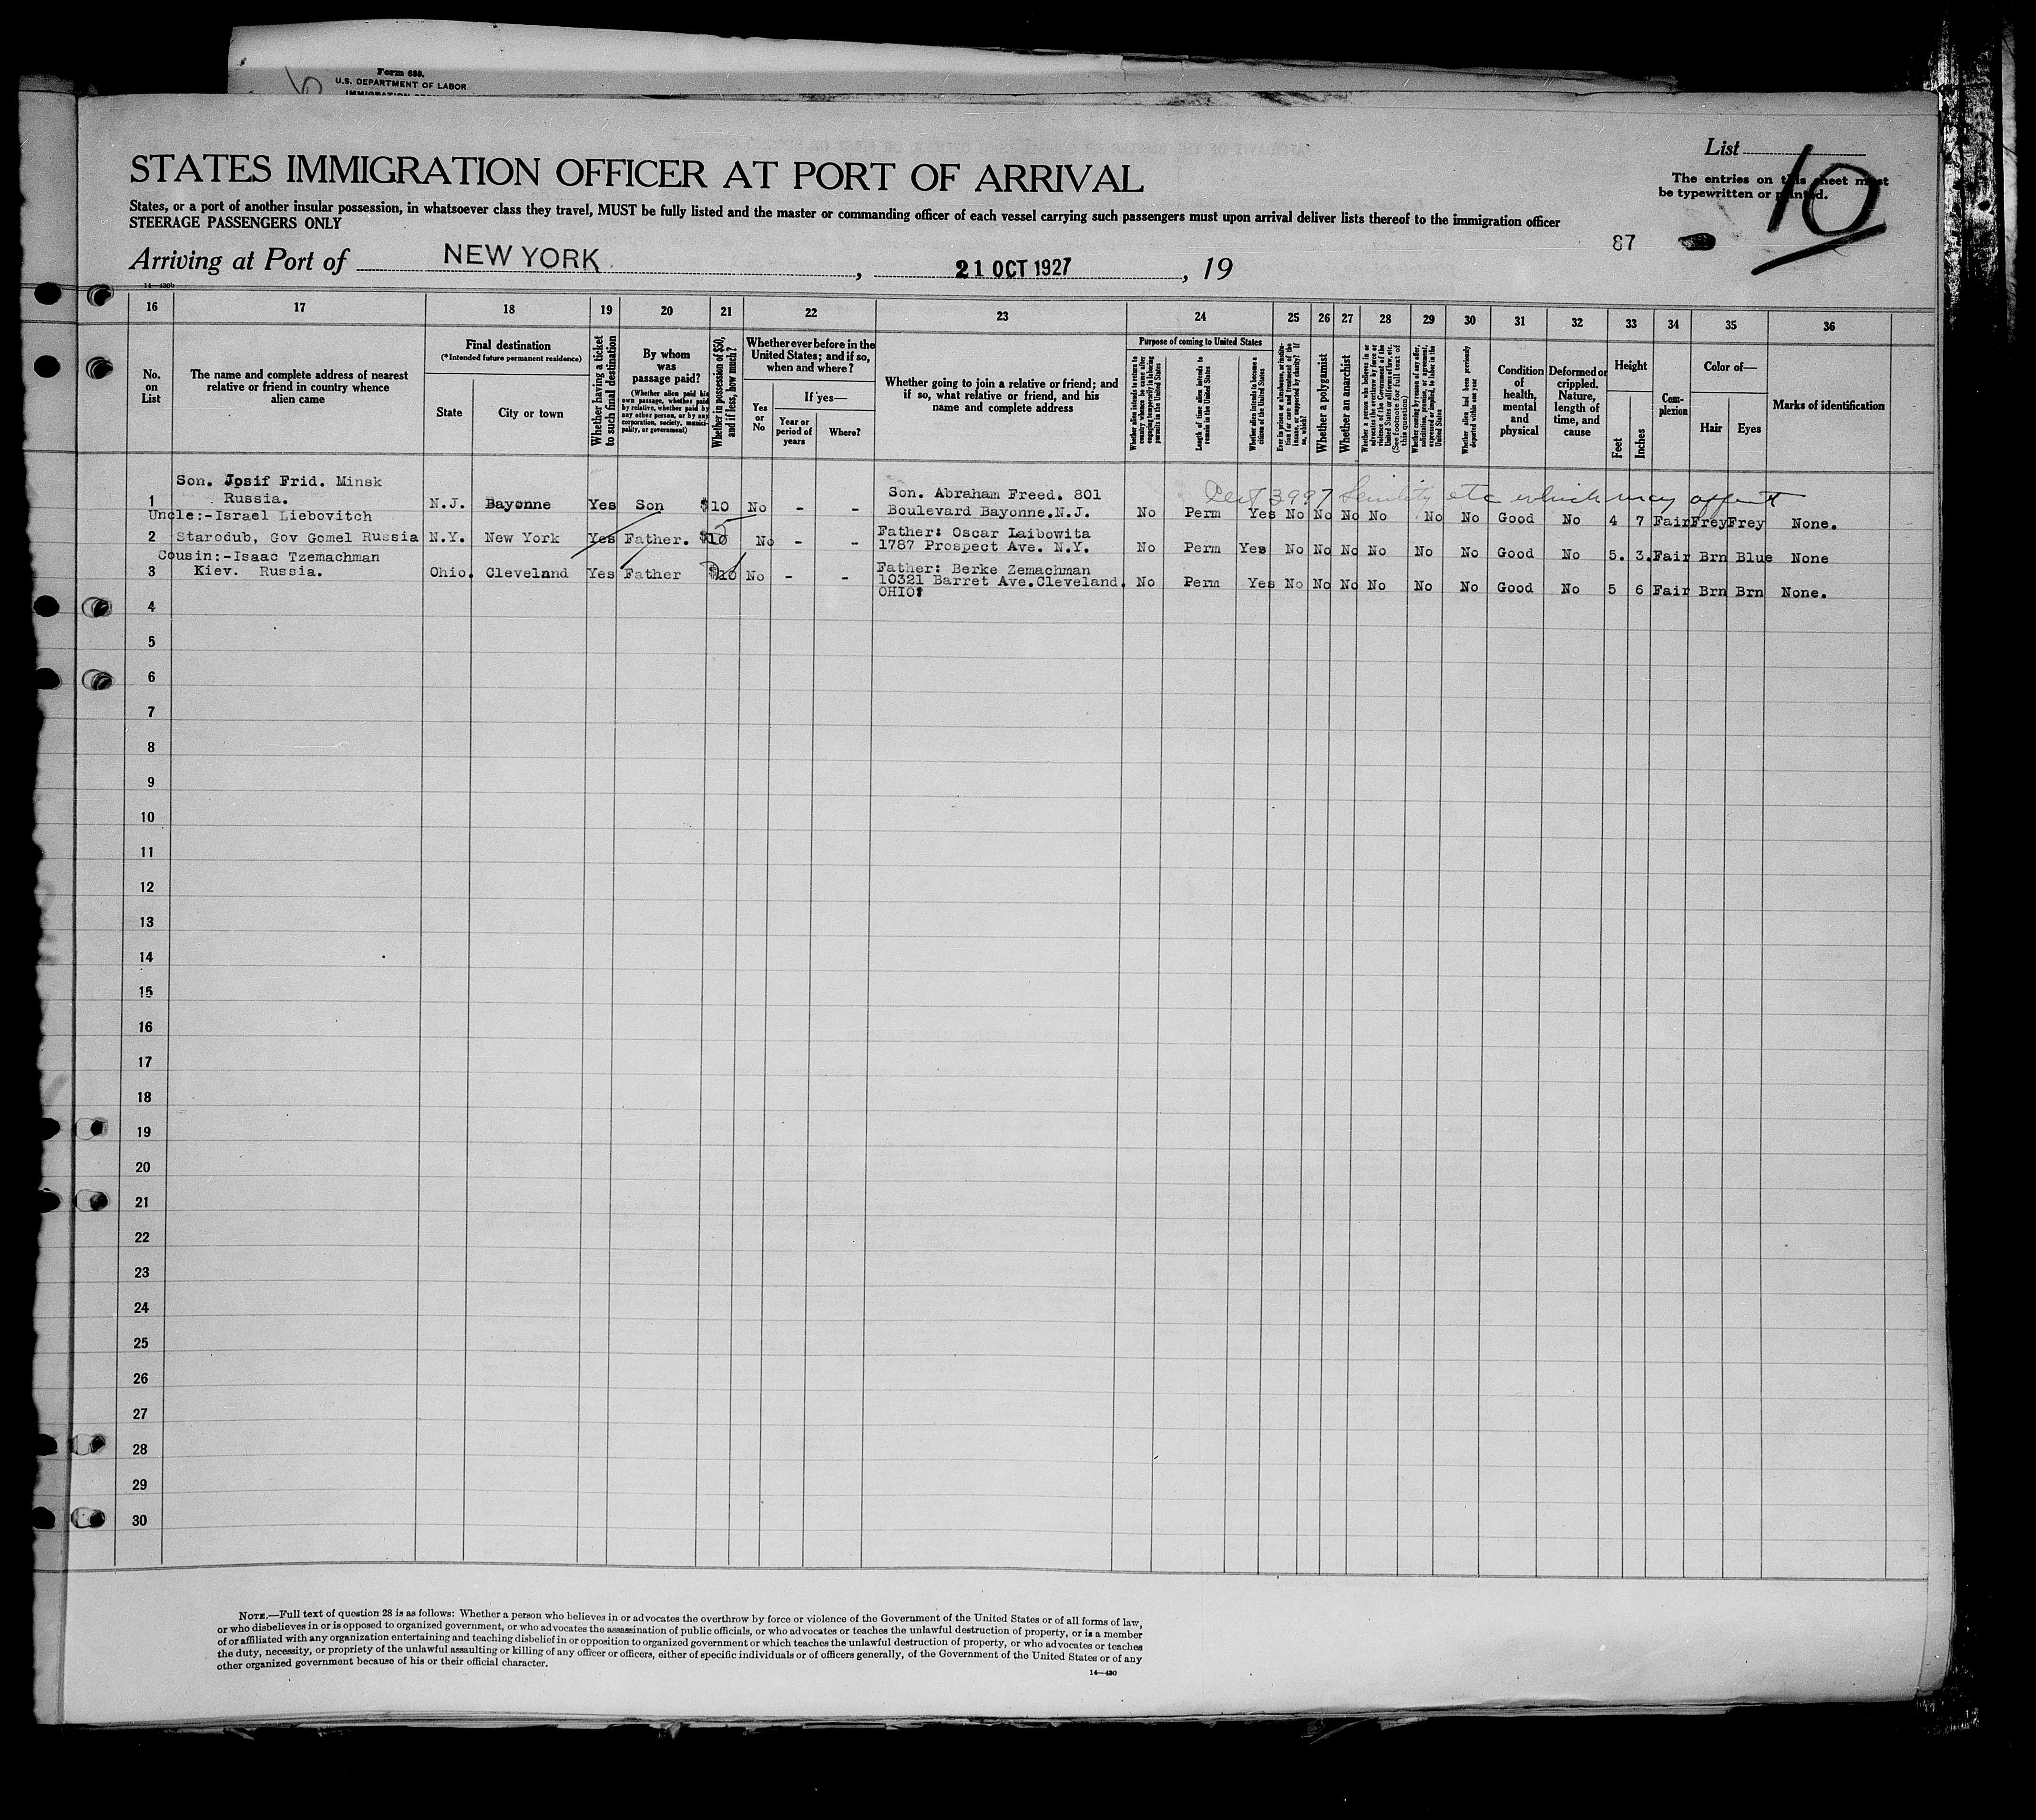 Form 688.
U.S. DEPARTMENT OF LABOR
STATES IMMIGRATION OFFICER AT PORT OF ARRIVAL
List
10
The entries on this sheet must
be typewritten or printed.
States, or a port of another insular possession, in whatsoever class they travel, MUST be fully listed and the master or commanding officer of each vessel carrying such passengers must upon arrival deliver lists thereof to the immigration officer
STEERAGE PASSENGERS ONLY
87
Arriving at Port of NEW YORK, 21 OCT 1927, 19
14—430b
16 17 18 19 20 21 22 23 24 25 26 27 28 29 30 31 32 33 34 35 36
No. on List
The name and complete address of nearest
relative or friend in country whence
alien came
Final destination
(*Intended future permanent residence)
State
City or town
Whether having a ticket
to such final destination
By whom
was
passage paid?
(Whether alien paid his
own passage, whether paid
by relative, whether paid by
any other person, or by any
corporation, society, munici-
pality, or government)
Whether in possession of $50,
and if less, how much?
Whether ever before in the
United States; and if so,
when and where?
Yes
or
No
If yes—
Year or
period of
years
Where?
Whether going to join a relative or friend; and
if so, what relative or friend, and his
name and complete address
Purpose of coming to United States
Whether alien intends to return to
country whence he came after
engaging temporarily in laboring
pursuits in the United States
Length of time alien intends to
remain in the United States
Whether alien intends to become a
citizen of the United States
Ever in prison or almshouse, or institu-
tion for care and treatment of the
insane, or supported by charity? If
so, which?
Whether a polygamist
Whether an anarchist
Whether a person who believes in or
advocates the overthrow by force or
violence of the Government of the
United States or all forms of law, etc.
(See footnote for full text of
this question)
Whether coming by reason of any offer,
solicitation, promise, or agreement,
expressed or implied, to labor in the
United States
Whether alien had been previously
deported within one year
Condition
of
health,
mental
and
physical
Deformed or
crippled.
Nature,
length of
time, and
cause
Height
Feet
Inches
Com-
plexion
Color of—
Hair
Eyes
Marks of identification
Cert 3997 Senility etc which may affect
Son. Josif Frid. Minsk
Son. Abraham Freed. 801
1 Russia. N.J. Bayonne Yes Son $10 No - - Boulevard Bayonne.N.J. No Perm Yes No No No No No No Good No 4 7 Fair Frey Frey None.
Uncle:-Israel Liebovitch
Father: Oscar Laibowita
2 Starodub, Gov Gomel Russia N.Y. New York Yes Father. $10 No - - 1787 Prospect Ave. N.Y. No Perm Yes No No No No No No Good No 5. 3. Fair Brn Blue None
Cousin:-Isaac Tzemachman
Father: Berke Zemachman
3 Kiev. Russia. Ohio. Cleveland Yes Father $10 No - - 10321 Barret Ave.Cleveland. No Perm Yes No No No No No No Good No 5 6 Fair Brn Brn None.
OHIO:
4
5
6
7
8
9
10
11
12
13
14
15
16
17
18
19
20
21
22
23
24
25
26
27
28
29
30
NOTE.—Full text of question 28 is as follows: Whether a person who believes in or advocates the overthrow by force or violence of the Government of the United States or of all forms of law,
or who disbelieves in or is opposed to organized government, or who advocates the assassination of public officials, or who advocates or teaches the unlawful destruction of property, or is a member
of or affiliated with any organization entertaining and teaching disbelief in or opposition to organized government or which teaches the unlawful destruction of property, or who advocates or teaches
the duty, necessity, or propriety of the unlawful assaulting or killing of any officer or officers, either of specific individuals or of officers generally, of the Government of the United States or of any
other organized government because of his or their official character.
14—430